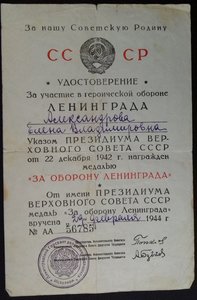 За нашу Советскую Родину
СССР
УДОСТОВЕРЕНИЕ
За участие в героической обороне
ЛЕНИНГРАДА
Александрова
Елена Владимировна
Указом ПРЕЗИДИУМА ВЕР-
ХОВНОГО СОВЕТА СССР
от 22 декабря 1942 г. награжден
медалью
«ЗА ОБОРОНУ ЛЕНИНГРАДА»
От имени ПРЕЗИДИУМА
ВЕРХОВНОГО СОВЕТА СССР
медаль «За оборону Ленинграда»
вручена февраля 1944 г
№ АА 56785